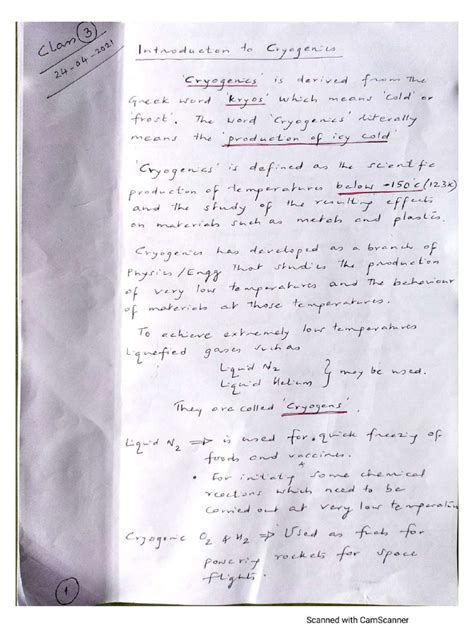 Class 3
24-04-2021
Introducton to Cryogenics
'Cryogenics' is derived from the
Greek word 'kryos' which means 'cold' or
frost'. The word 'Cryogenics' literally
means the 'production of icy cold'
'Cryogenics' is defined as the scientfic
production of temperatures below -150°c (123K)
and the study of the resulting effects
on materials such as metals and plastics.
Cryogenics has developed as a branch of
Physics/Engg that studies the production
of very low temperatures and the behaviour
of materials at those temperatures.
To achieve extremely low temperatures
liquefied gases such as
Liquid N2
Liquid Helium } may be used.
They are called 'Cryogens'.
Liquid N2 ⇒ is used for quick freezing of
foods and vaccines.
• For initiatig some chemical
reactions which need to be
carried out at very low temperatures
Cryogenic O2 & H2 ⇒ Used as fuels for
powering rockets for space
flights.
1
Scanned with CamScanner